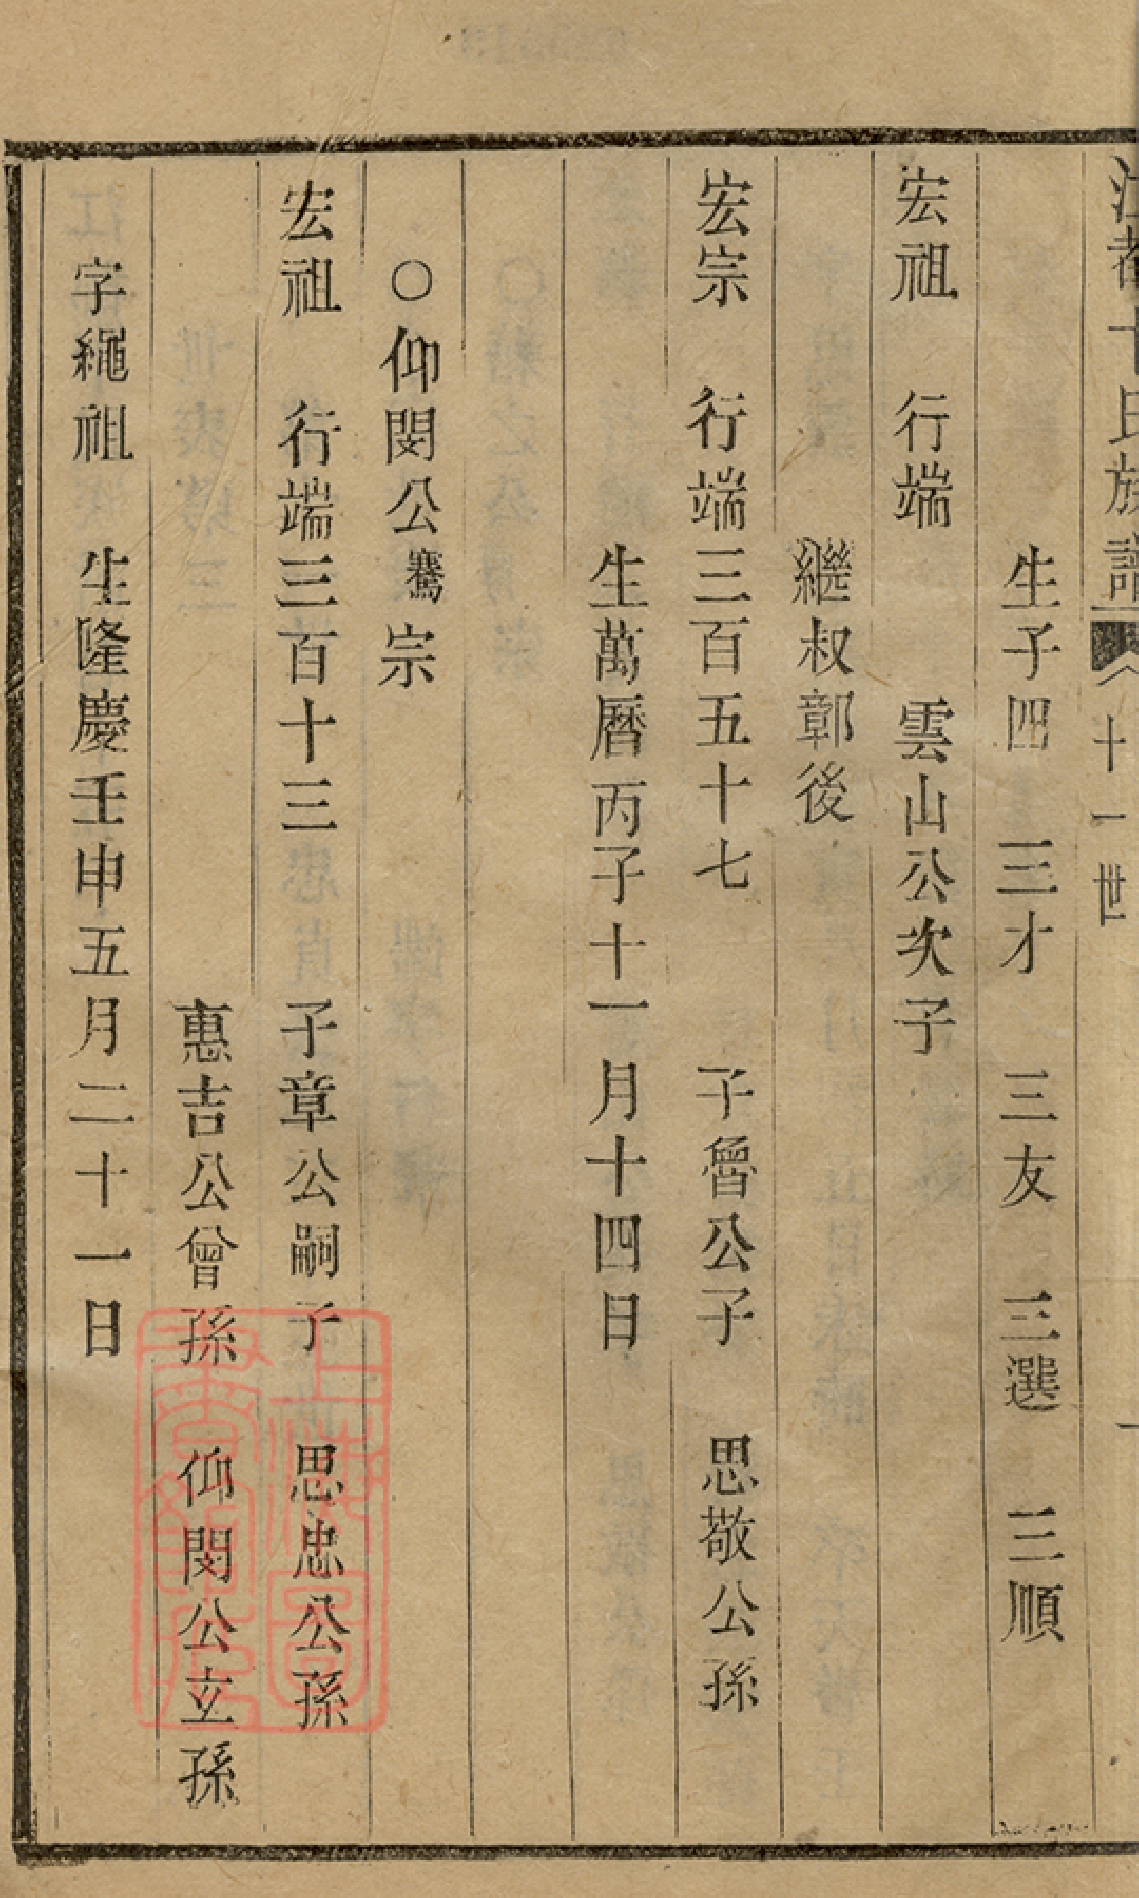 江都卞氏族譜 十一世
生子四 三才 三友 三選 三順
宏祖 行端 雲山公次子
繼叔鄣後
宏宗 行端三百五十七 子魯公子 思敬公孫
生萬曆丙子十一月十四日
○仰閔公騫宗
宏祖 行端三百十三 子章公嗣子 思忠公孫
惠吉公曾孫 仰閔公玄孫
字繩祖 生隆慶壬申五月二十一日
上海圖書館藏